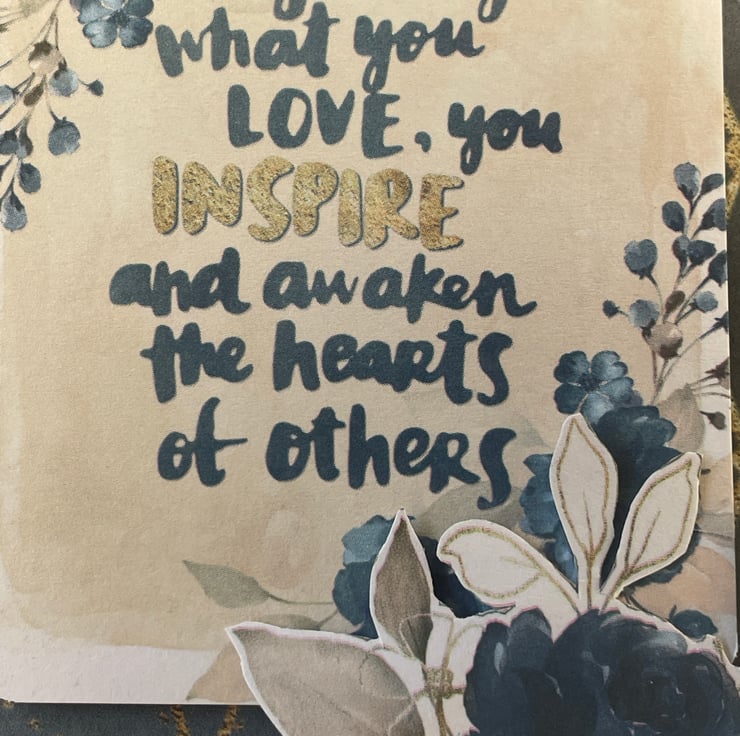 what you
LOVE, you
INSPIRE
and awaken
the hearts
of others